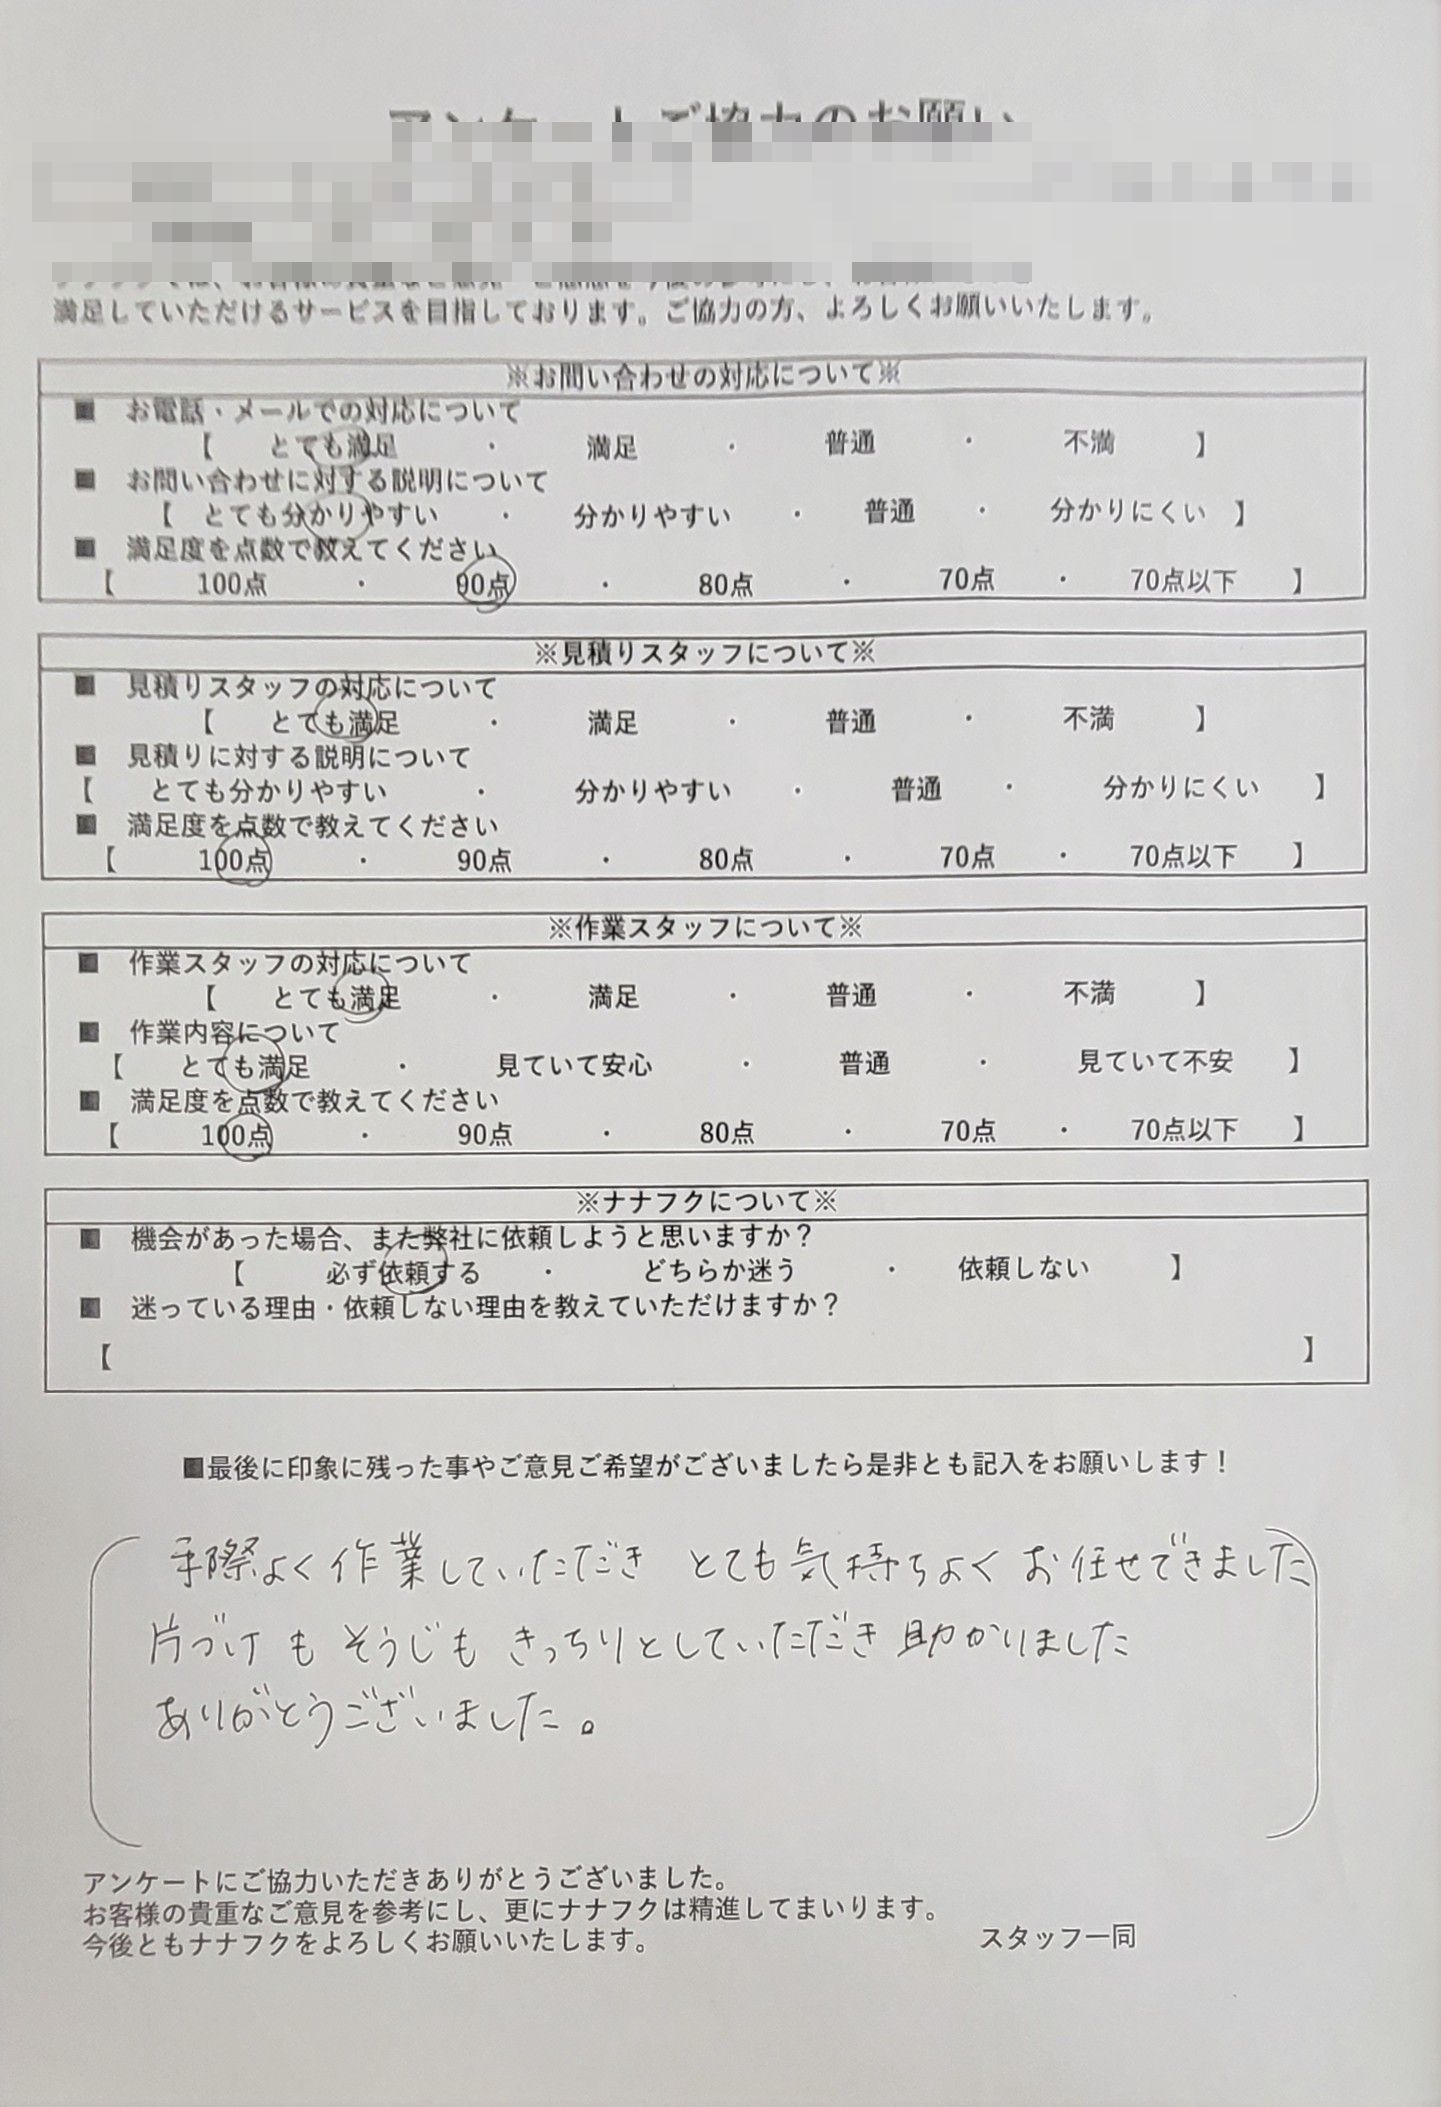 アンケートご協力のお願い
満足していただけるサービスを目指しております。ご協力の方、よろしくお願いいたします。
※お問い合わせの対応について※
■ お電話・メールでの対応について
【 とても満足 ・ 満足 ・ 普通 ・ 不満 】
■ お問い合わせに対する説明について
【 とても分かりやすい ・ 分かりやすい ・ 普通 ・ 分かりにくい 】
■ 満足度を点数で教えてください
【 100点 ・ 90点 ・ 80点 ・ 70点 ・ 70点以下 】
※見積りスタッフについて※
■ 見積りスタッフの対応について
【 とても満足 ・ 満足 ・ 普通 ・ 不満 】
■ 見積りに対する説明について
【 とても分かりやすい ・ 分かりやすい ・ 普通 ・ 分かりにくい 】
■ 満足度を点数で教えてください
【 100点 ・ 90点 ・ 80点 ・ 70点 ・ 70点以下 】
※作業スタッフについて※
■ 作業スタッフの対応について
【 とても満足 ・ 満足 ・ 普通 ・ 不満 】
■ 作業内容について
【 とても満足 ・ 見ていて安心 ・ 普通 ・ 見ていて不安 】
■ 満足度を点数で教えてください
【 100点 ・ 90点 ・ 80点 ・ 70点 ・ 70点以下 】
※ナナフクについて※
■ 機会があった場合、また弊社に依頼しようと思いますか？
【 必ず依頼する ・ どちらか迷う ・ 依頼しない 】
■ 迷っている理由・依頼しない理由を教えていただけますか？
【 】
■最後に印象に残った事やご意見ご希望がございましたら是非とも記入をお願いします！
手際よく作業していただき とても気持ちよく お任せできました
片づけ も そうじも きっちりとしていただき 助かりました
ありがとうございました。
アンケートにご協力いただきありがとうございました。
お客様の貴重なご意見を参考にし、更にナナフクは精進してまいります。
今後ともナナフクをよろしくお願いいたします。 スタッフ一同